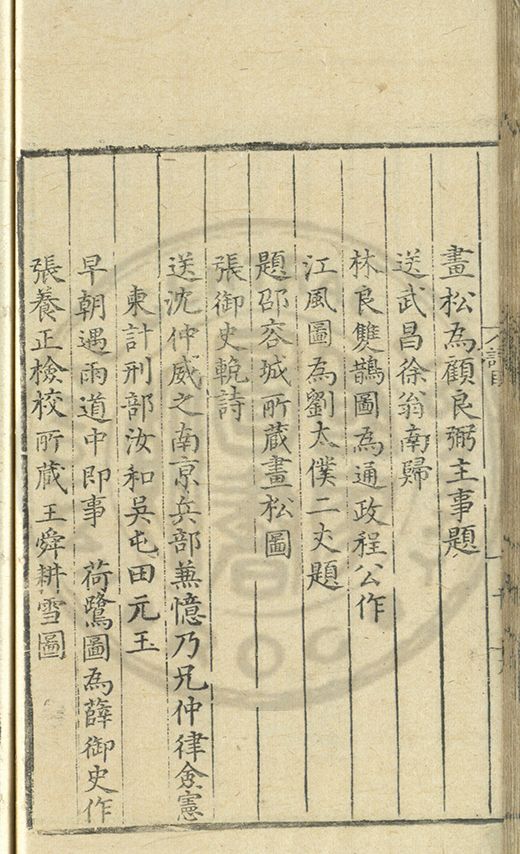 畫松為顧良弼主事題
送武昌徐翁南歸
林良雙鵲圖為通政程公作
江風圖為劉太僕二丈題
題邵容城所藏畫松圖
張御史輓詩
送沈仲威之南京兵部兼憶乃兄仲律僉憲
柬計刑部汝和吳屯田元玉
早朝遇雨道中即事 荷鷺圖為薛御史作
張養正檢校所藏王舜耕雪圖